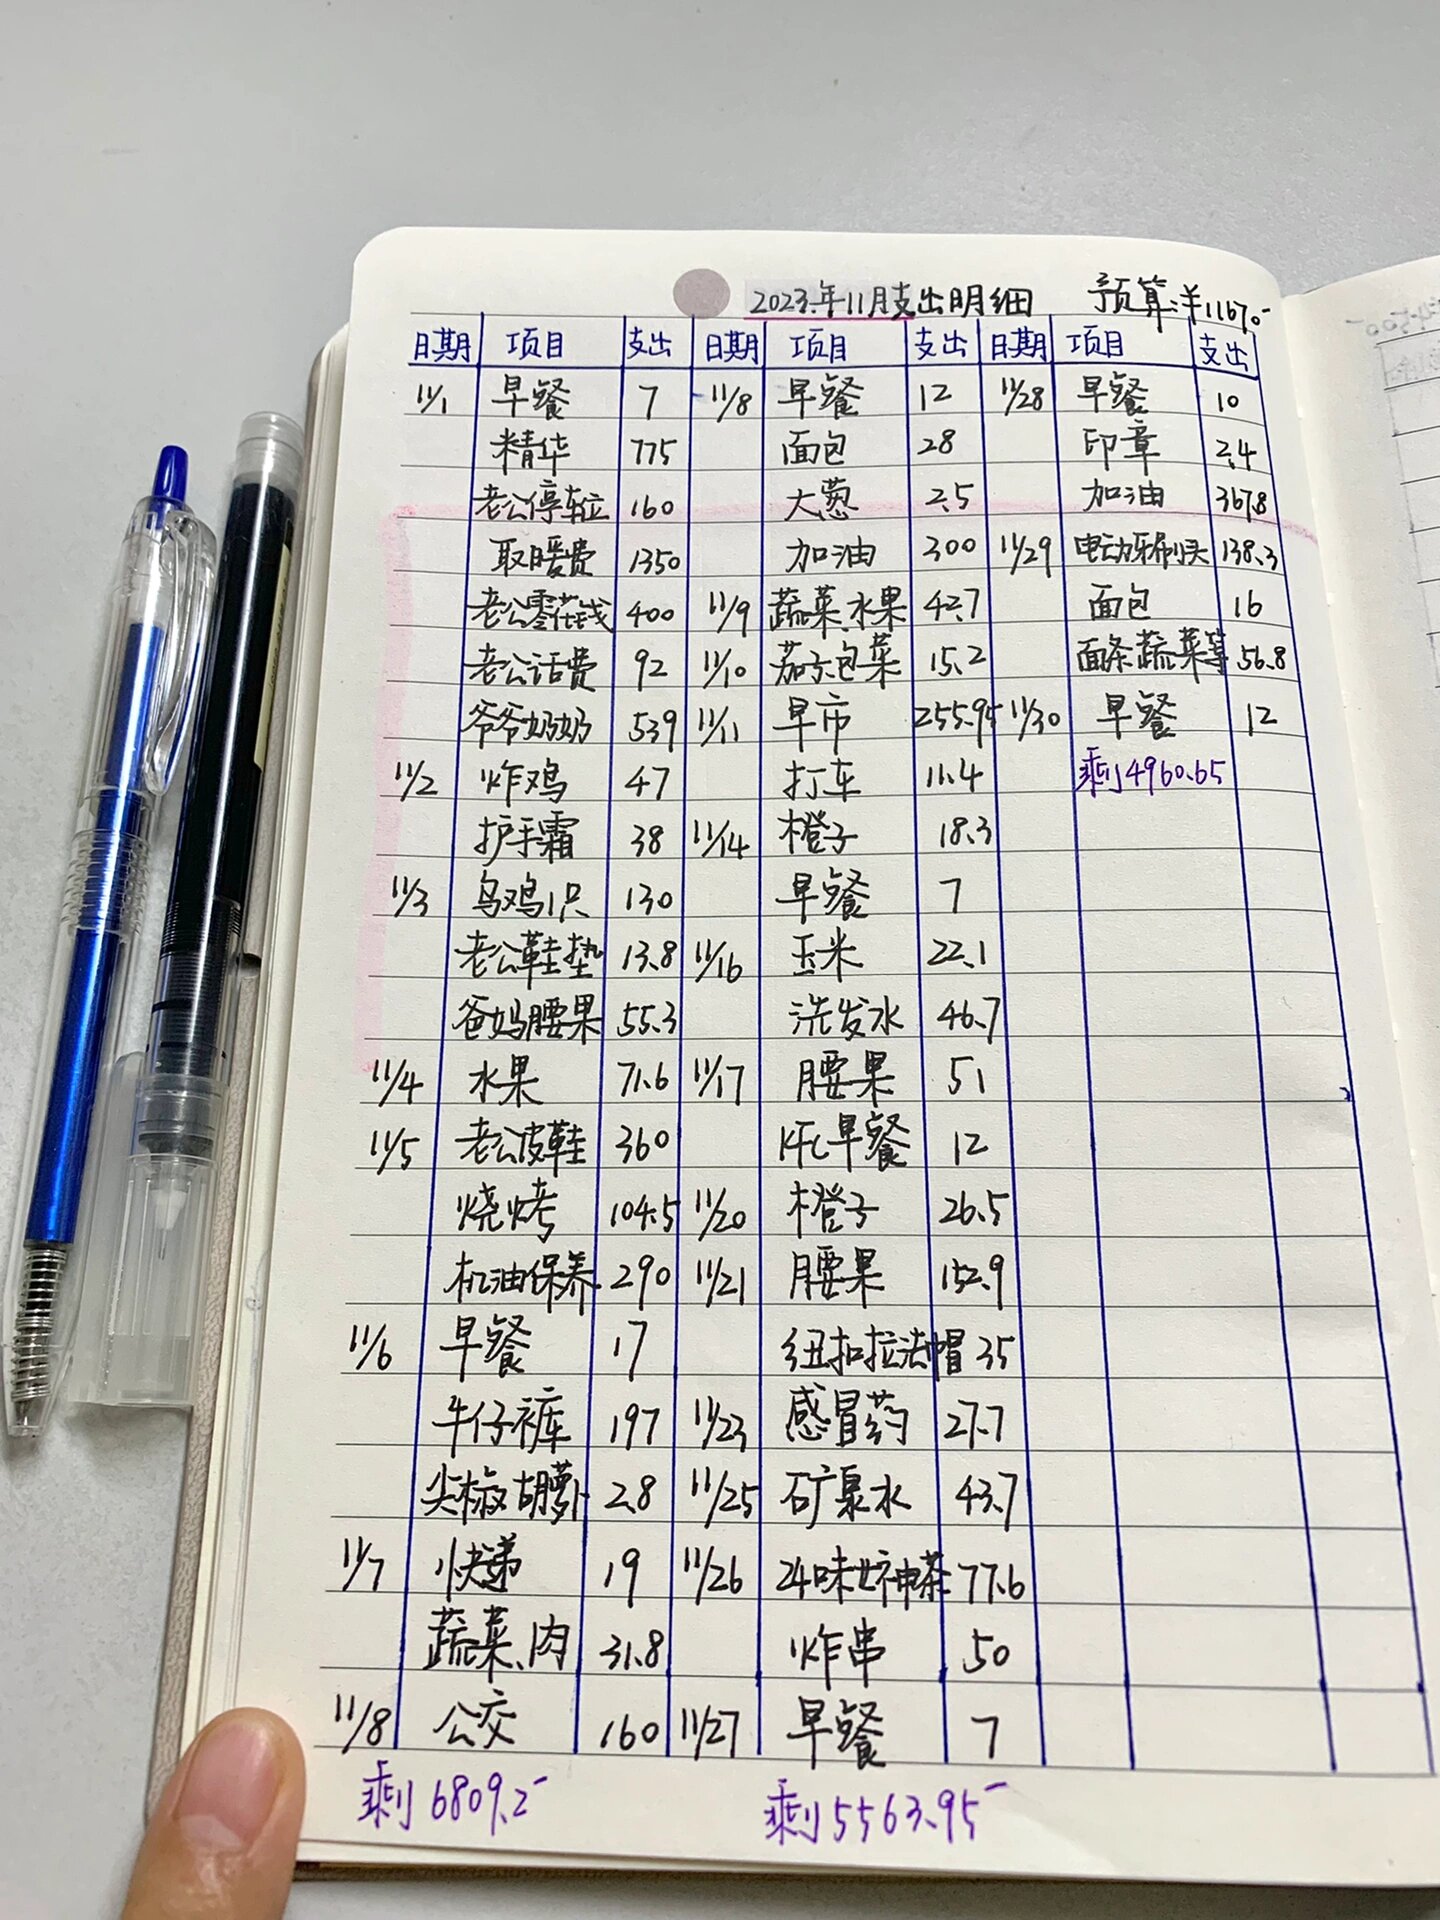 2023.年11月支出明细 预算:¥11670-
日期 项目 支出 日期 项目 支出 日期 项目 支出
11/1 早餐 7 11/8 早餐 12 11/28 早餐 10
精华 775 面包 28 印章 2.4
老公停车位 160 大葱 2.5 加油 367.8
取暖费 1350 加油 300 11/29 电动牙刷头 138.3
老公零花钱 400 11/9 蔬菜、水果 42.7 面包 16
老公话费 92 11/10 茄子、包菜 15.2 面条蔬菜等 56.8
爷爷奶奶 539 11/11 早市 255.95 11/30 早餐 12
11/2 炸鸡 47 打车 11.4 剩4960.65
护手霜 38 11/14 橙子 18.3
11/3 乌鸡1只 130 早餐 7
老公鞋垫 13.8 11/16 玉米 22.1
爸妈腰果 55.3 洗发水 46.7
11/4 水果 71.6 11/17 腰果 51
11/5 老公皮鞋 360 KFC早餐 12
烧烤 104.5 11/20 橙子 26.5
机油保养 290 11/21 腰果 152.9
11/6 早餐 17 纽扣拉法帽 35
牛仔裤 197 11/23 感冒药 27.7
尖椒胡萝卜 2.8 11/25 矿泉水 43.7
11/7 快递 19 11/26 24味女神茶 77.6
蔬菜、肉 31.8 炸串 50
11/8 公交 160 11/27 早餐 7
剩6809.2- 剩5563.95-